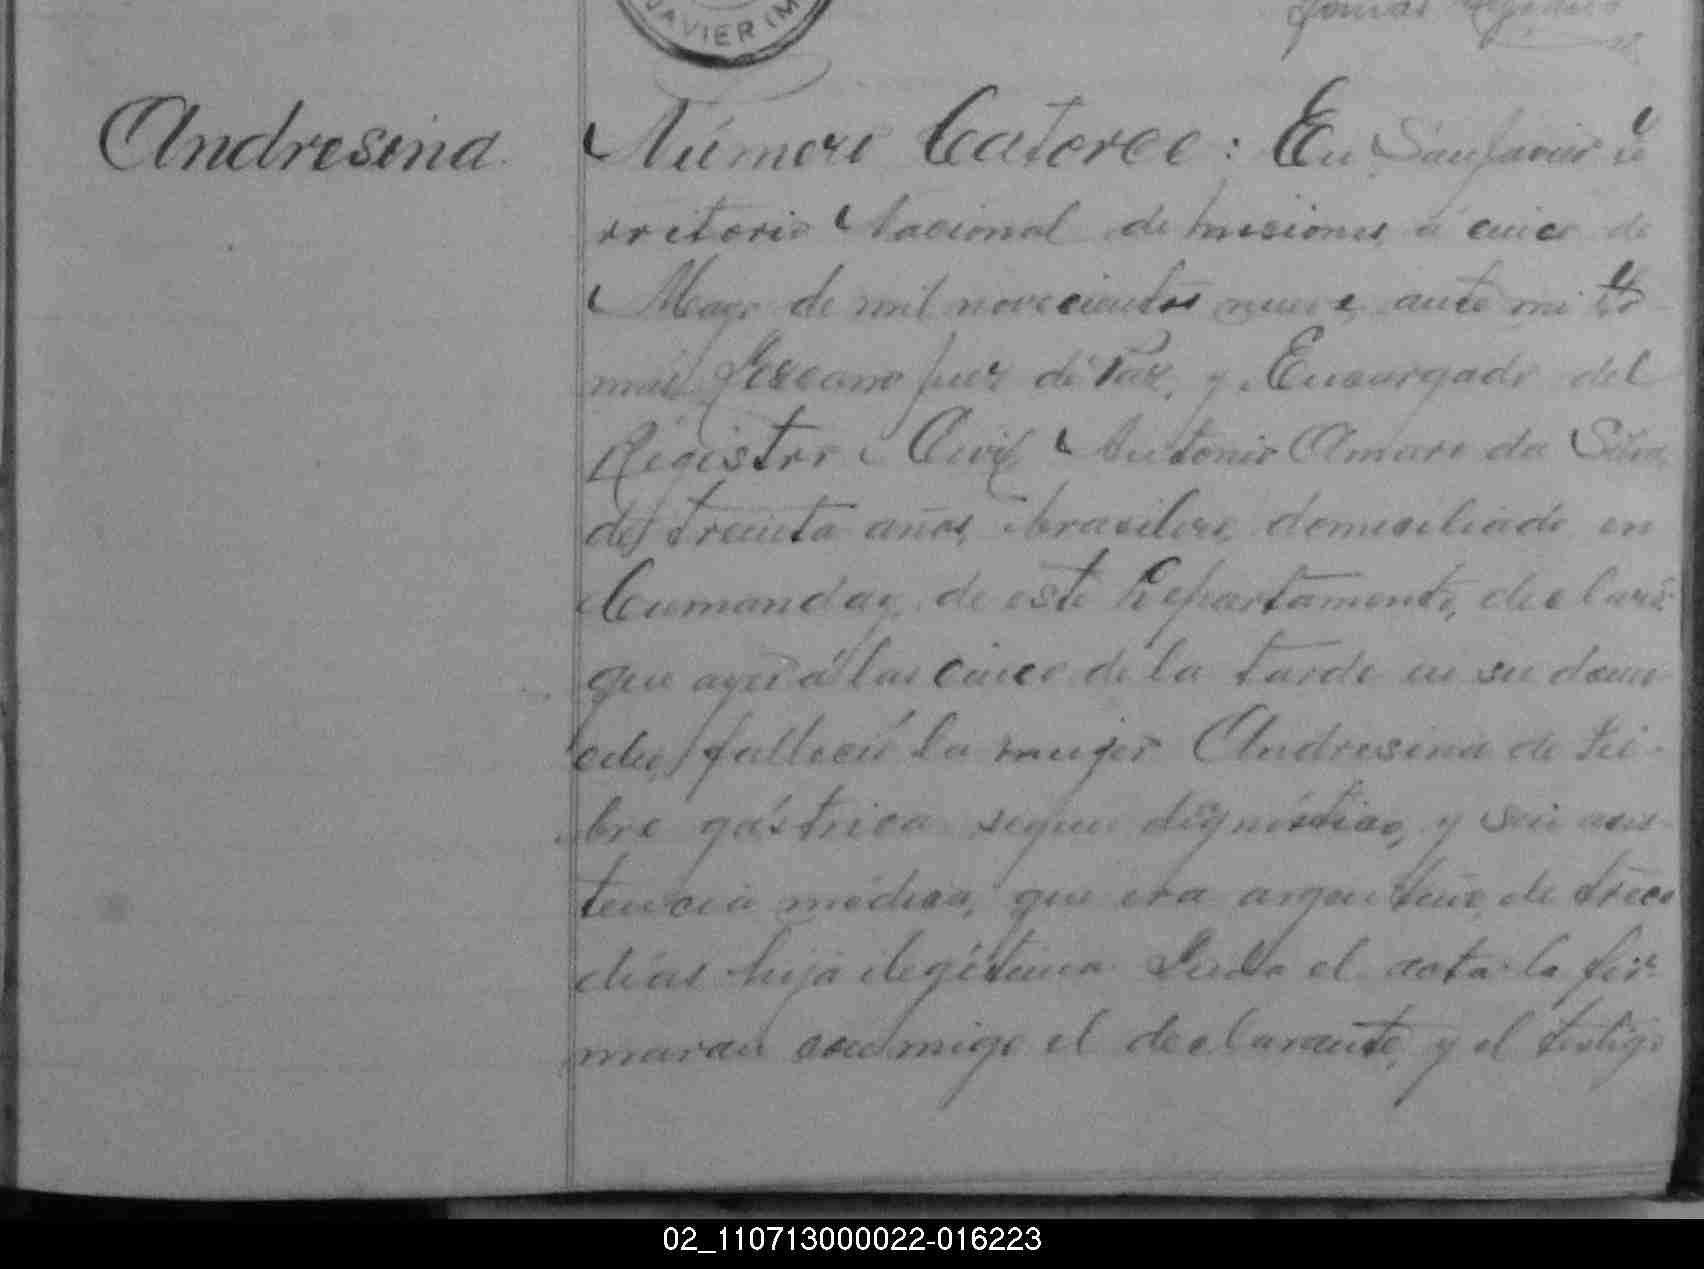 JAVIER (M
Andresina.
Número Catorce: En San Javier te
rritorio Nacional de Misiones á cinco de
Mayo de mil novecientos nueve, ante mi
Lezcano Juez de Paz, y Encargado del
Registro Civil Antonio Amaro da Silva,
de treinta años, brasilero, domiciliado en
Cumanday, de este Departamento, declaró:
que ayer á las cinco de la tarde en su domi-
cilio, falleció la mujer Andresina de fie-
bre gástrica segun dignóstico, y sin asis-
tencia médica, que era argentina, de trece
dias hija ilegítima. Leida el acta la fir-
maran conmigo el declarante, y el testigo
02_110713000022-016223